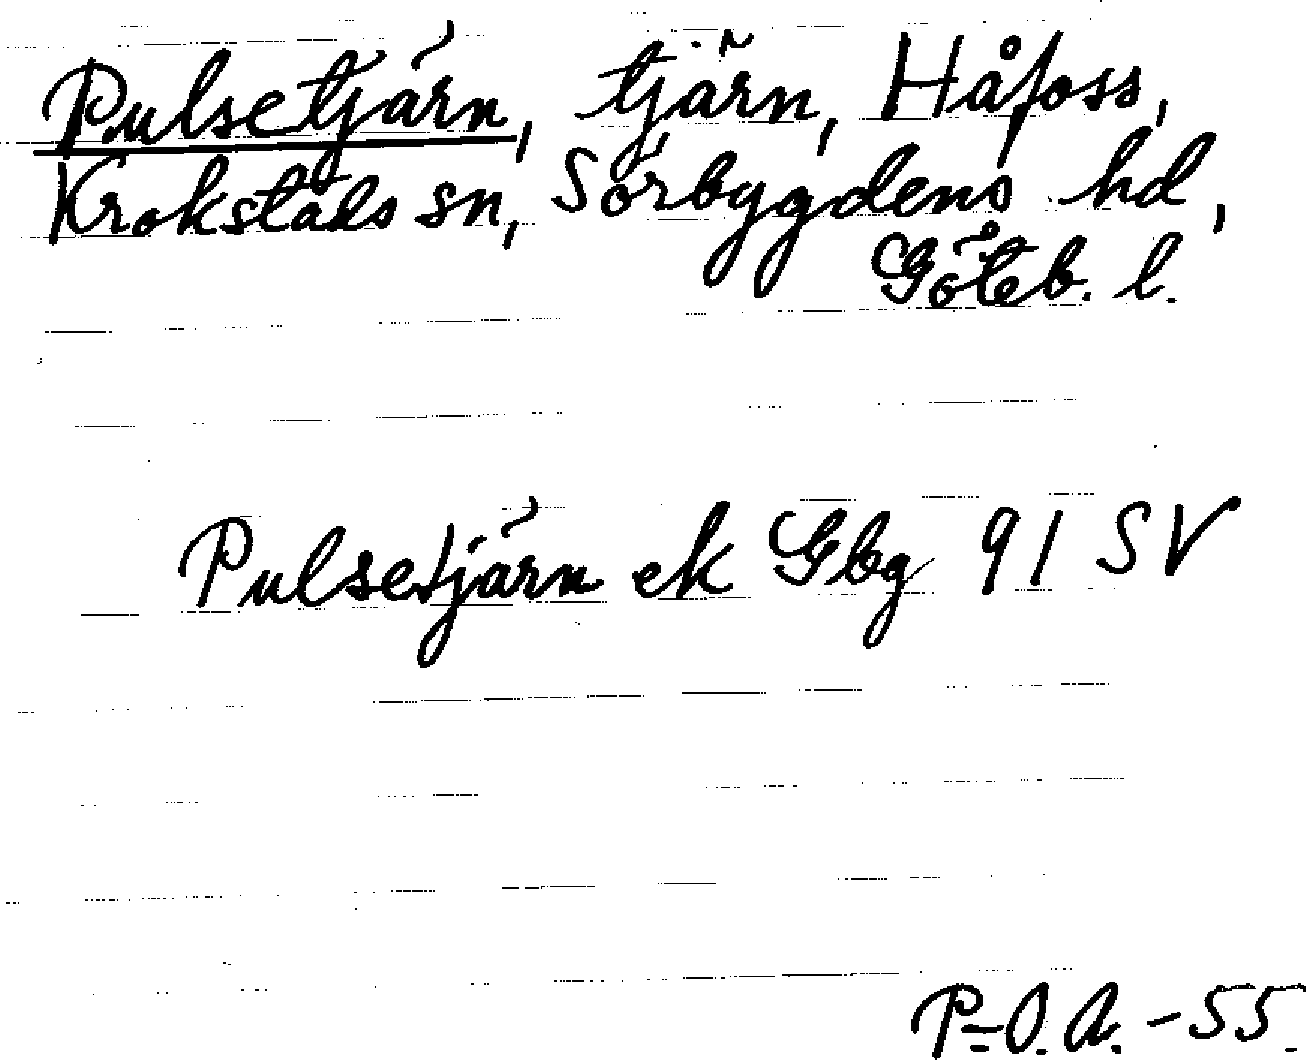 Pulsetjärn, tjärn, Håfoss,
Krokstads sn, Sörbygdens hd,
Göteb. l.
Pulsetjärn ek Gbg 91 SV
P-O.A.-55.